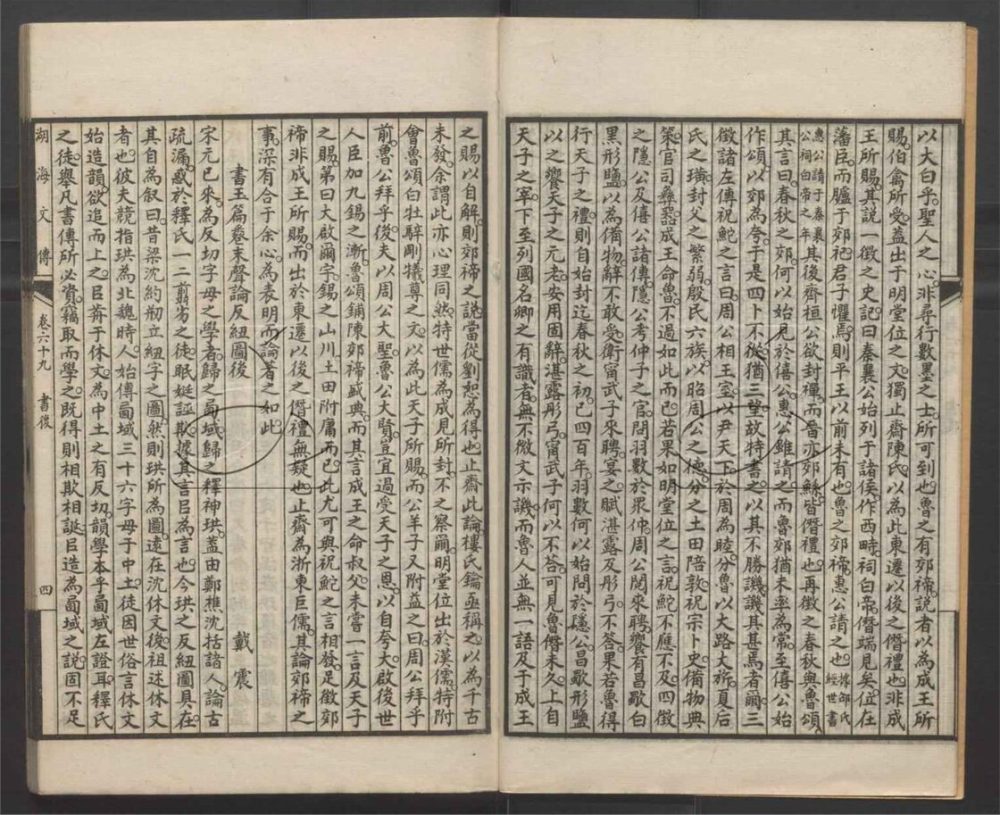 以大白乎聖人之心非尋行數墨之士所可到也魯之有郊禘說者以為成王所
賜伯禽所受蓋出于明堂位之文獨止齋陳氏以為此東遷以後之僭禮也非成
王所賜其說一徵之史記曰秦襄公始列于諸侯作西畤祠白帝僭端見矣位在
藩臣而臚于郊祀君子懼焉則平王以前未有也魯之郊禘惠公請之也據邵氏經世書
惠公請于秦襄公祠白帝之年其後齊桓公欲封禪而晉亦郊鯀皆僭禮也再徵之春秋與魯頌
其言曰春秋之郊何以始見於僖公惠公雖請之而魯郊猶未率為常至僖公始
作頌以郊為夸于是四卜不從猶三望故特書之以其不勝譏譏其甚焉者爾三
徵諸左傳祝鮀之言曰周公相王室以尹天下於周為睦分魯以大路大旂夏后
氏之璜封父之繁弱殷氏六族以昭周公之德分之土田陪敦祝宗卜史備物典
策官司彝器成王命魯不過如此而已若果如明堂位之言祝鮀不應不及四徵
之隱公及僖公諸傳隱公考仲子之宮問羽數於眾仲周公閱來聘饗有昌歜白
黑形鹽以為備物辭不敢受衛甯武子來聘宴之賦湛露及彤弓不答果若魯得
行天子之禮則自始封迄春秋之初已四百年羽數何以始問於隱公昌歜形鹽
以之饗天子之元老安用固辭湛露彤弓甯武子何以不答可見魯僭未久上自
天子之宰下至列國名卿之有識者無不微文示譏而魯人並無一語及于成王
之賜以自解則郊禘之說當從劉恕為得也止齋此論樓氏鑰亟稱之以為千古
未發余謂此亦心理同然特世儒為成見所封不之察爾明堂位出於漢儒特附
會魯頌白牡騂剛犧尊之文以為此天子所賜而公羊子又附益之曰周公拜乎
前魯公拜乎後夫以周公大聖魯公大賢豈宜過受天子之恩以自夸大啟後世
人臣加九錫之漸魯頌鋪陳郊禘盛典而其言成王之命叔父未嘗一言及天子
之賜第曰大啟爾宇錫之山川土田附庸而已此尤可與祝鮀之言相發足徵郊
禘非成王所賜而出於東遷以後之僭禮無疑也止齋為浙東巨儒其論郊禘之
事深有合于余心為表明而論著之如此
書玉篇卷末聲論反紐圖後
戴震
宋元已來為反切字母之學者歸之西域歸之釋神珙蓋由鄭樵沈括諸人論古
疏漏惑於釋氏一二翦劣之徒眠娗誣欺據其言㠯為言也今珙之反紐圖具在
其自為叙曰昔梁沈約剙立紐字之圖然則珙所為圖遠在沈休文後祖述休文
者也彼夫競指珙為北魏時人始傳西域三十六字母于中土徒因世俗言休文
始造韻欲追而上之㠯前于休文為中土之有反切韻學本乎西域左證耳釋氏
之徒舉凡書傳所必資竊取而學之既得則相欺相誕㠯造為西域之說固不足
湖海文傳
卷六十九
書後
四